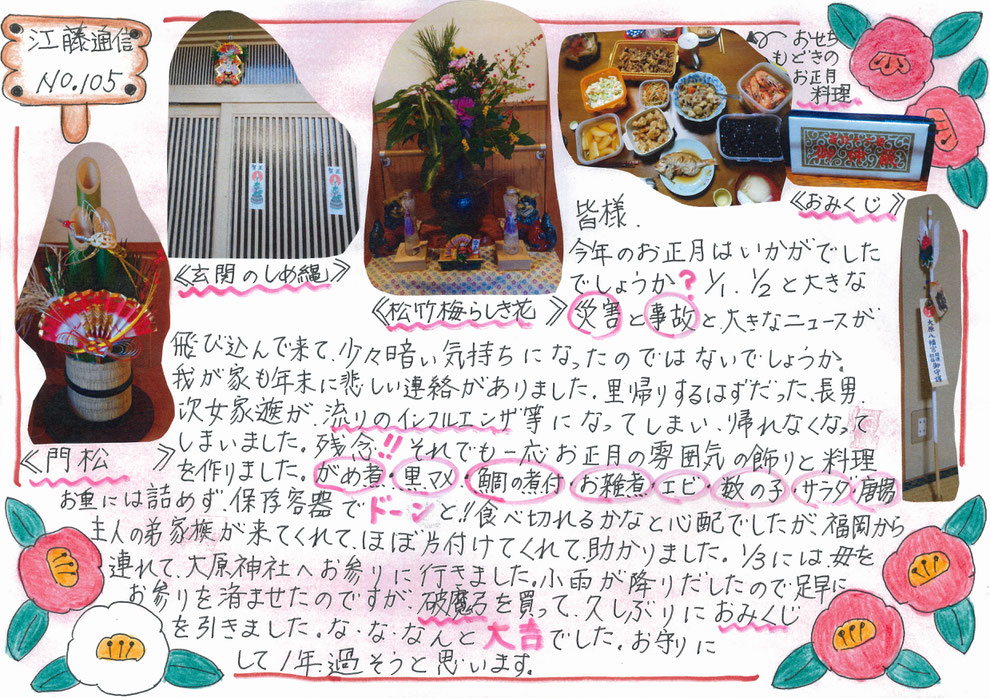 江藤通信
No.105
おせち
もどきの
お正月
料理
《おみくじ》
《玄関のしめ縄》
《松竹梅らしき花》
《門松》
皆様.
今年のお正月はいかがでした
でしょうか?1/1、1/2と大きな
災害と事故と、大きなニュースが
飛び込んで来て、少々暗い気持ちになったのではないでしょうか。
我が家も年末に悲しい連絡がありました。里帰りするはずだった、長男、
次女家族が、流りのインフルエンザ等になってしまい、帰れなくなって
しまいました。残念!!それでも一応お正月の雰囲気の飾りと料理
を作りました。がめ煮・黒マメ・鯛の煮付・お雑煮・エビ・数の子・サラダ・唐揚
お重には詰めず、保存容器でドーンと!!食べ切れるかなと心配でしたが、福岡から
主人の弟家族が来てくれて、ほぼ片付けてくれて、助かりました。1/3には、母を
連れて、大原神社へお参りに行きました。小雨が降りだしたので足早に
お参りを済ませたのですが、破魔弓を買って、久しぶりにおみくじ
を引きました。な・な・なんと大吉でした。お守りに
して1年、過そうと思います。
大原八幡宮
御守護
御神籤